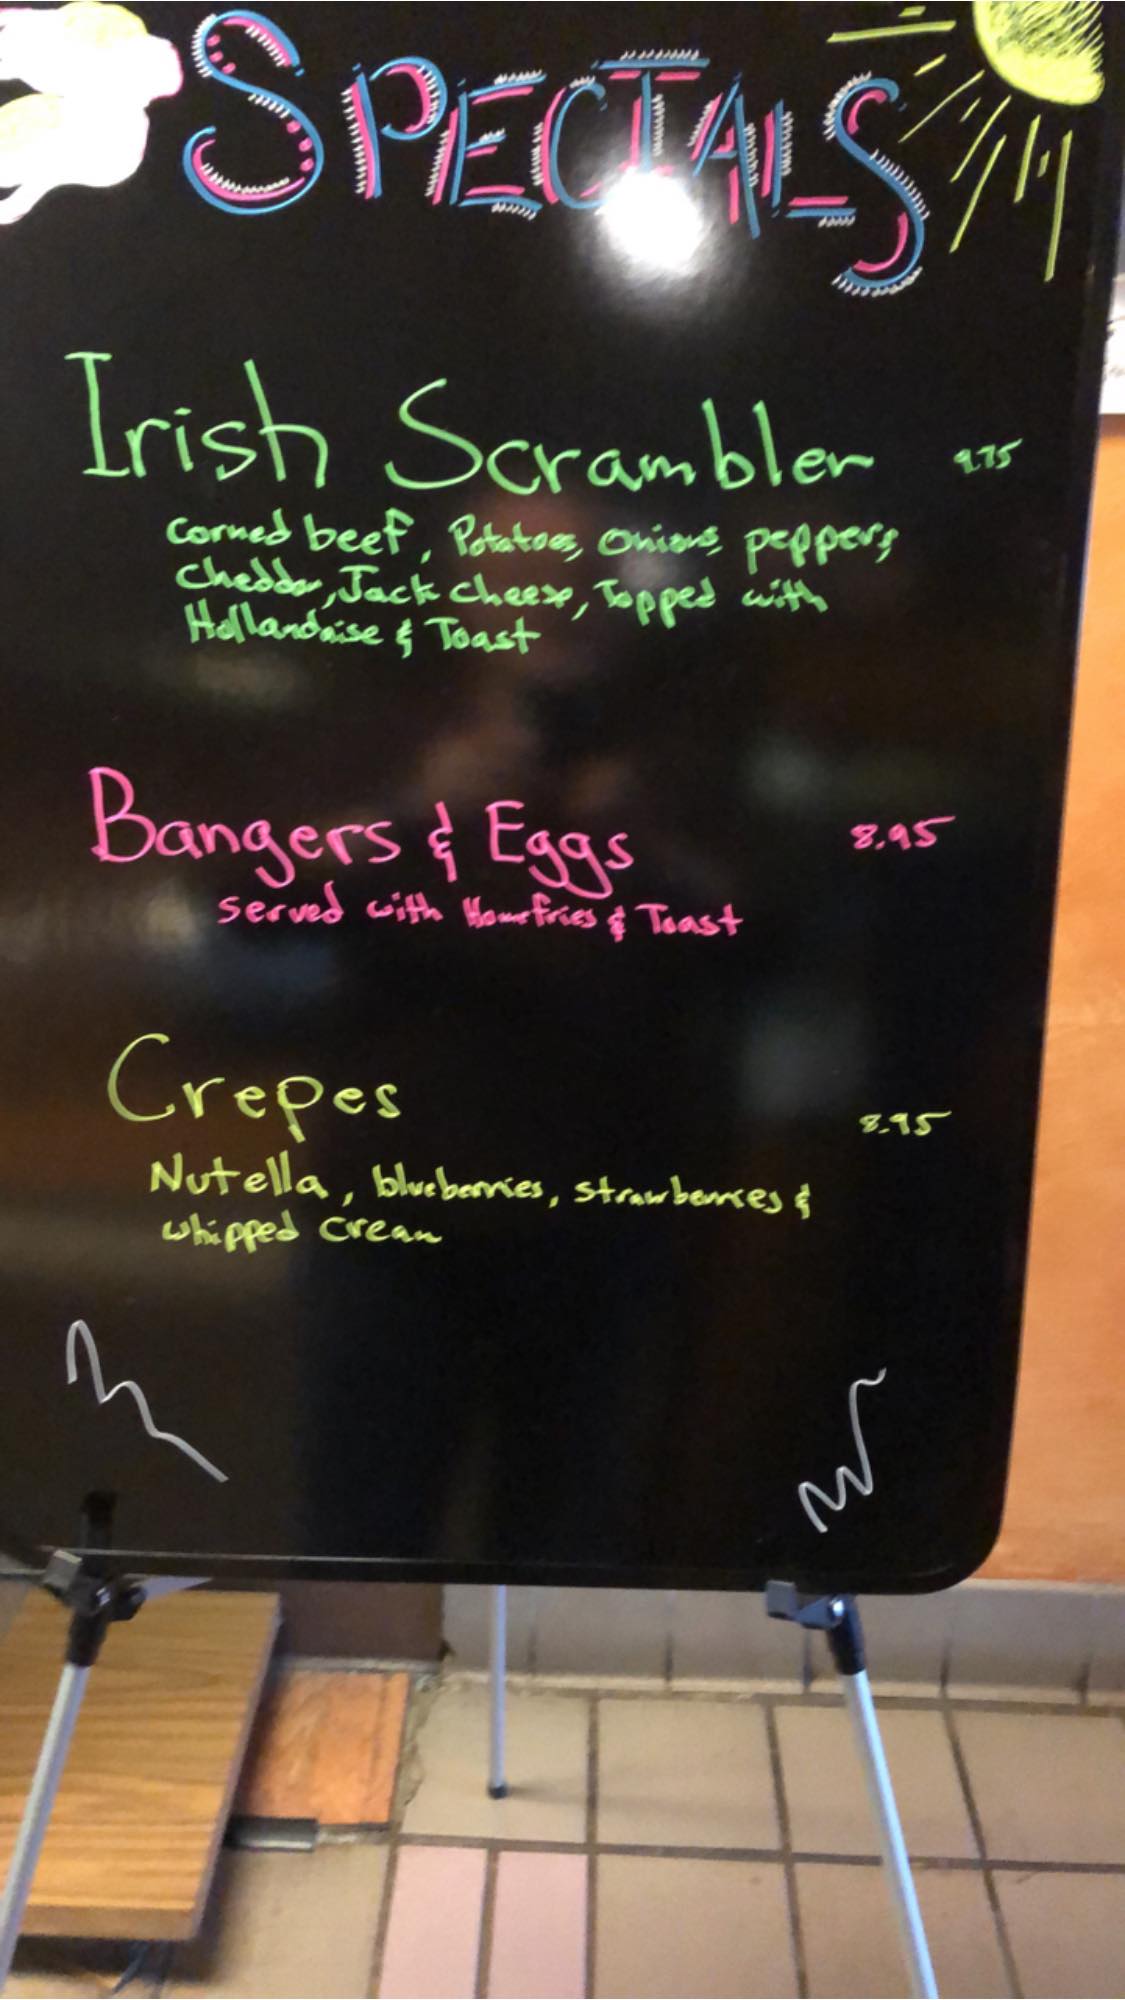 SPECIALS
Irish Scrambler 9.75
corned beef, Potatoes, onions, peppers,
Cheddar, Jack cheese, Topped with
Hollandaise & Toast
Bangers & Eggs 8.95
served with Homefries & Toast
Crepes 8.95
Nutella, blueberries, strawberries &
whipped cream